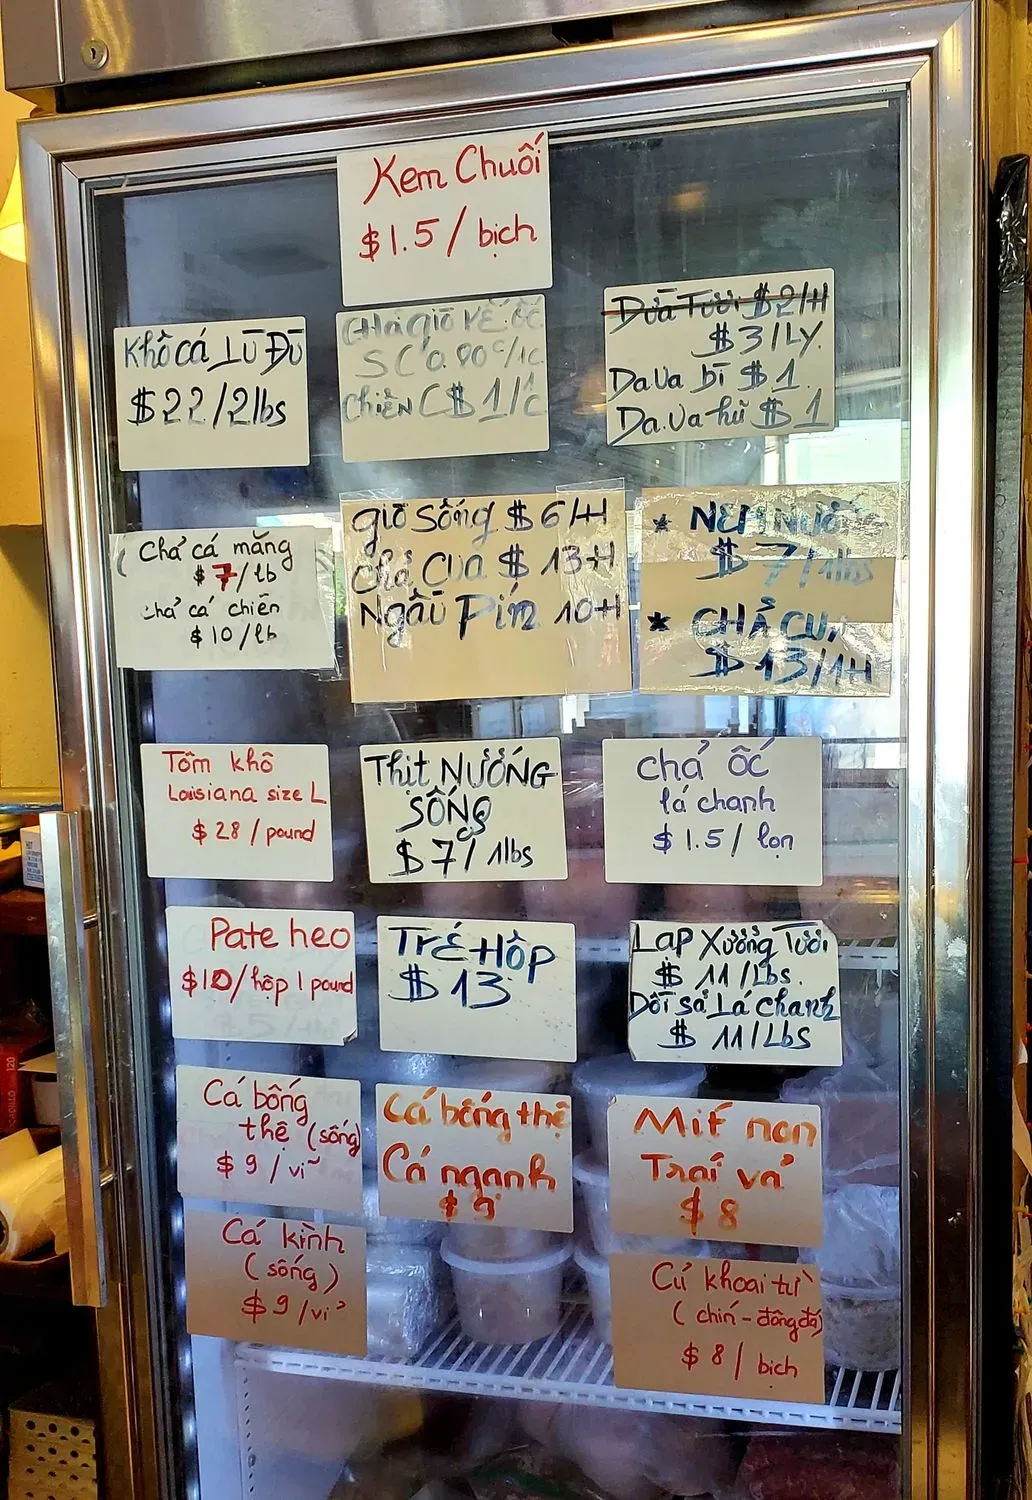 Kem Chuối
$1.5 / bịch
Khô cá Lù Đù
$22/2lbs
chiên $1/1c
Dừa Tươi $2/H
$3/LY.
Da Ua bì $1
Da.Ua hũ $1
Chả cá măng
$7/lb
chả cá chiên
$10/lb
giò sống $6/H
chả cua $13H
Ngầu Pín 10H
$7/1lbs
* CHẢ CUA
$13/1H
Tôm khô
Louisiana size L
$28 / pound
Thịt NƯỚNG
SỐNG
$7/1lbs
chả ốc
lá chanh
$1.5 / lọn
Pate heo
$10/hộp 1 pound
TRÉ HỘP
$13
Lạp Xưởng Tươi
$11/Lbs.
Dồi sả Lá chanh
$11/Lbs
Cá bống
thệ (sống)
$9 / vĩ
Cá bống thệ
Cá ngạnh
$9
Mít non
Trái vả
$8
Cá kình
(sống)
$9/vỉ
Củ khoai từ
(chín - đông đá)
$8 / bịch